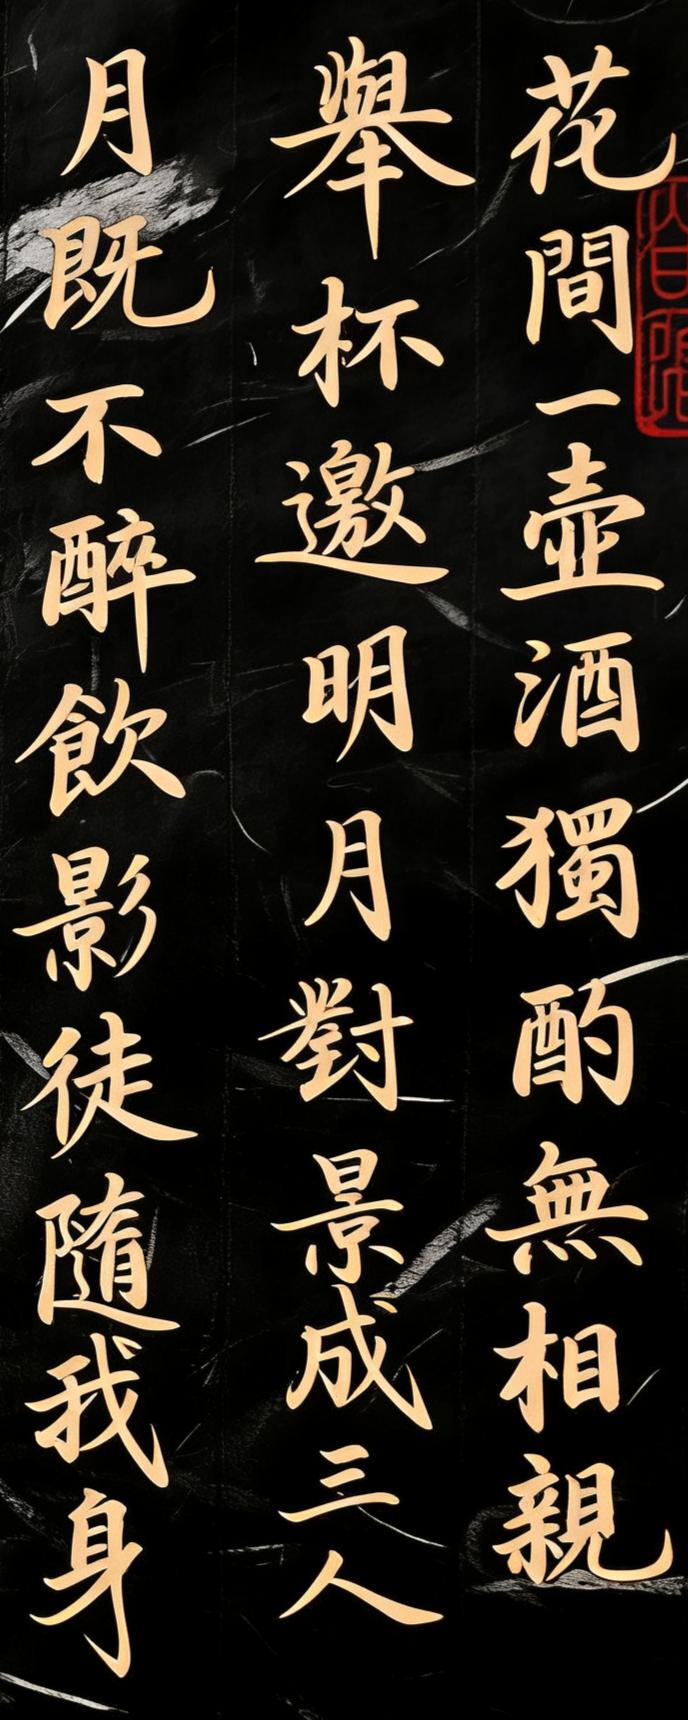 花間一壺酒獨酌無相親
舉杯邀明月對景成三人
月既不醉飲影徒隨我身